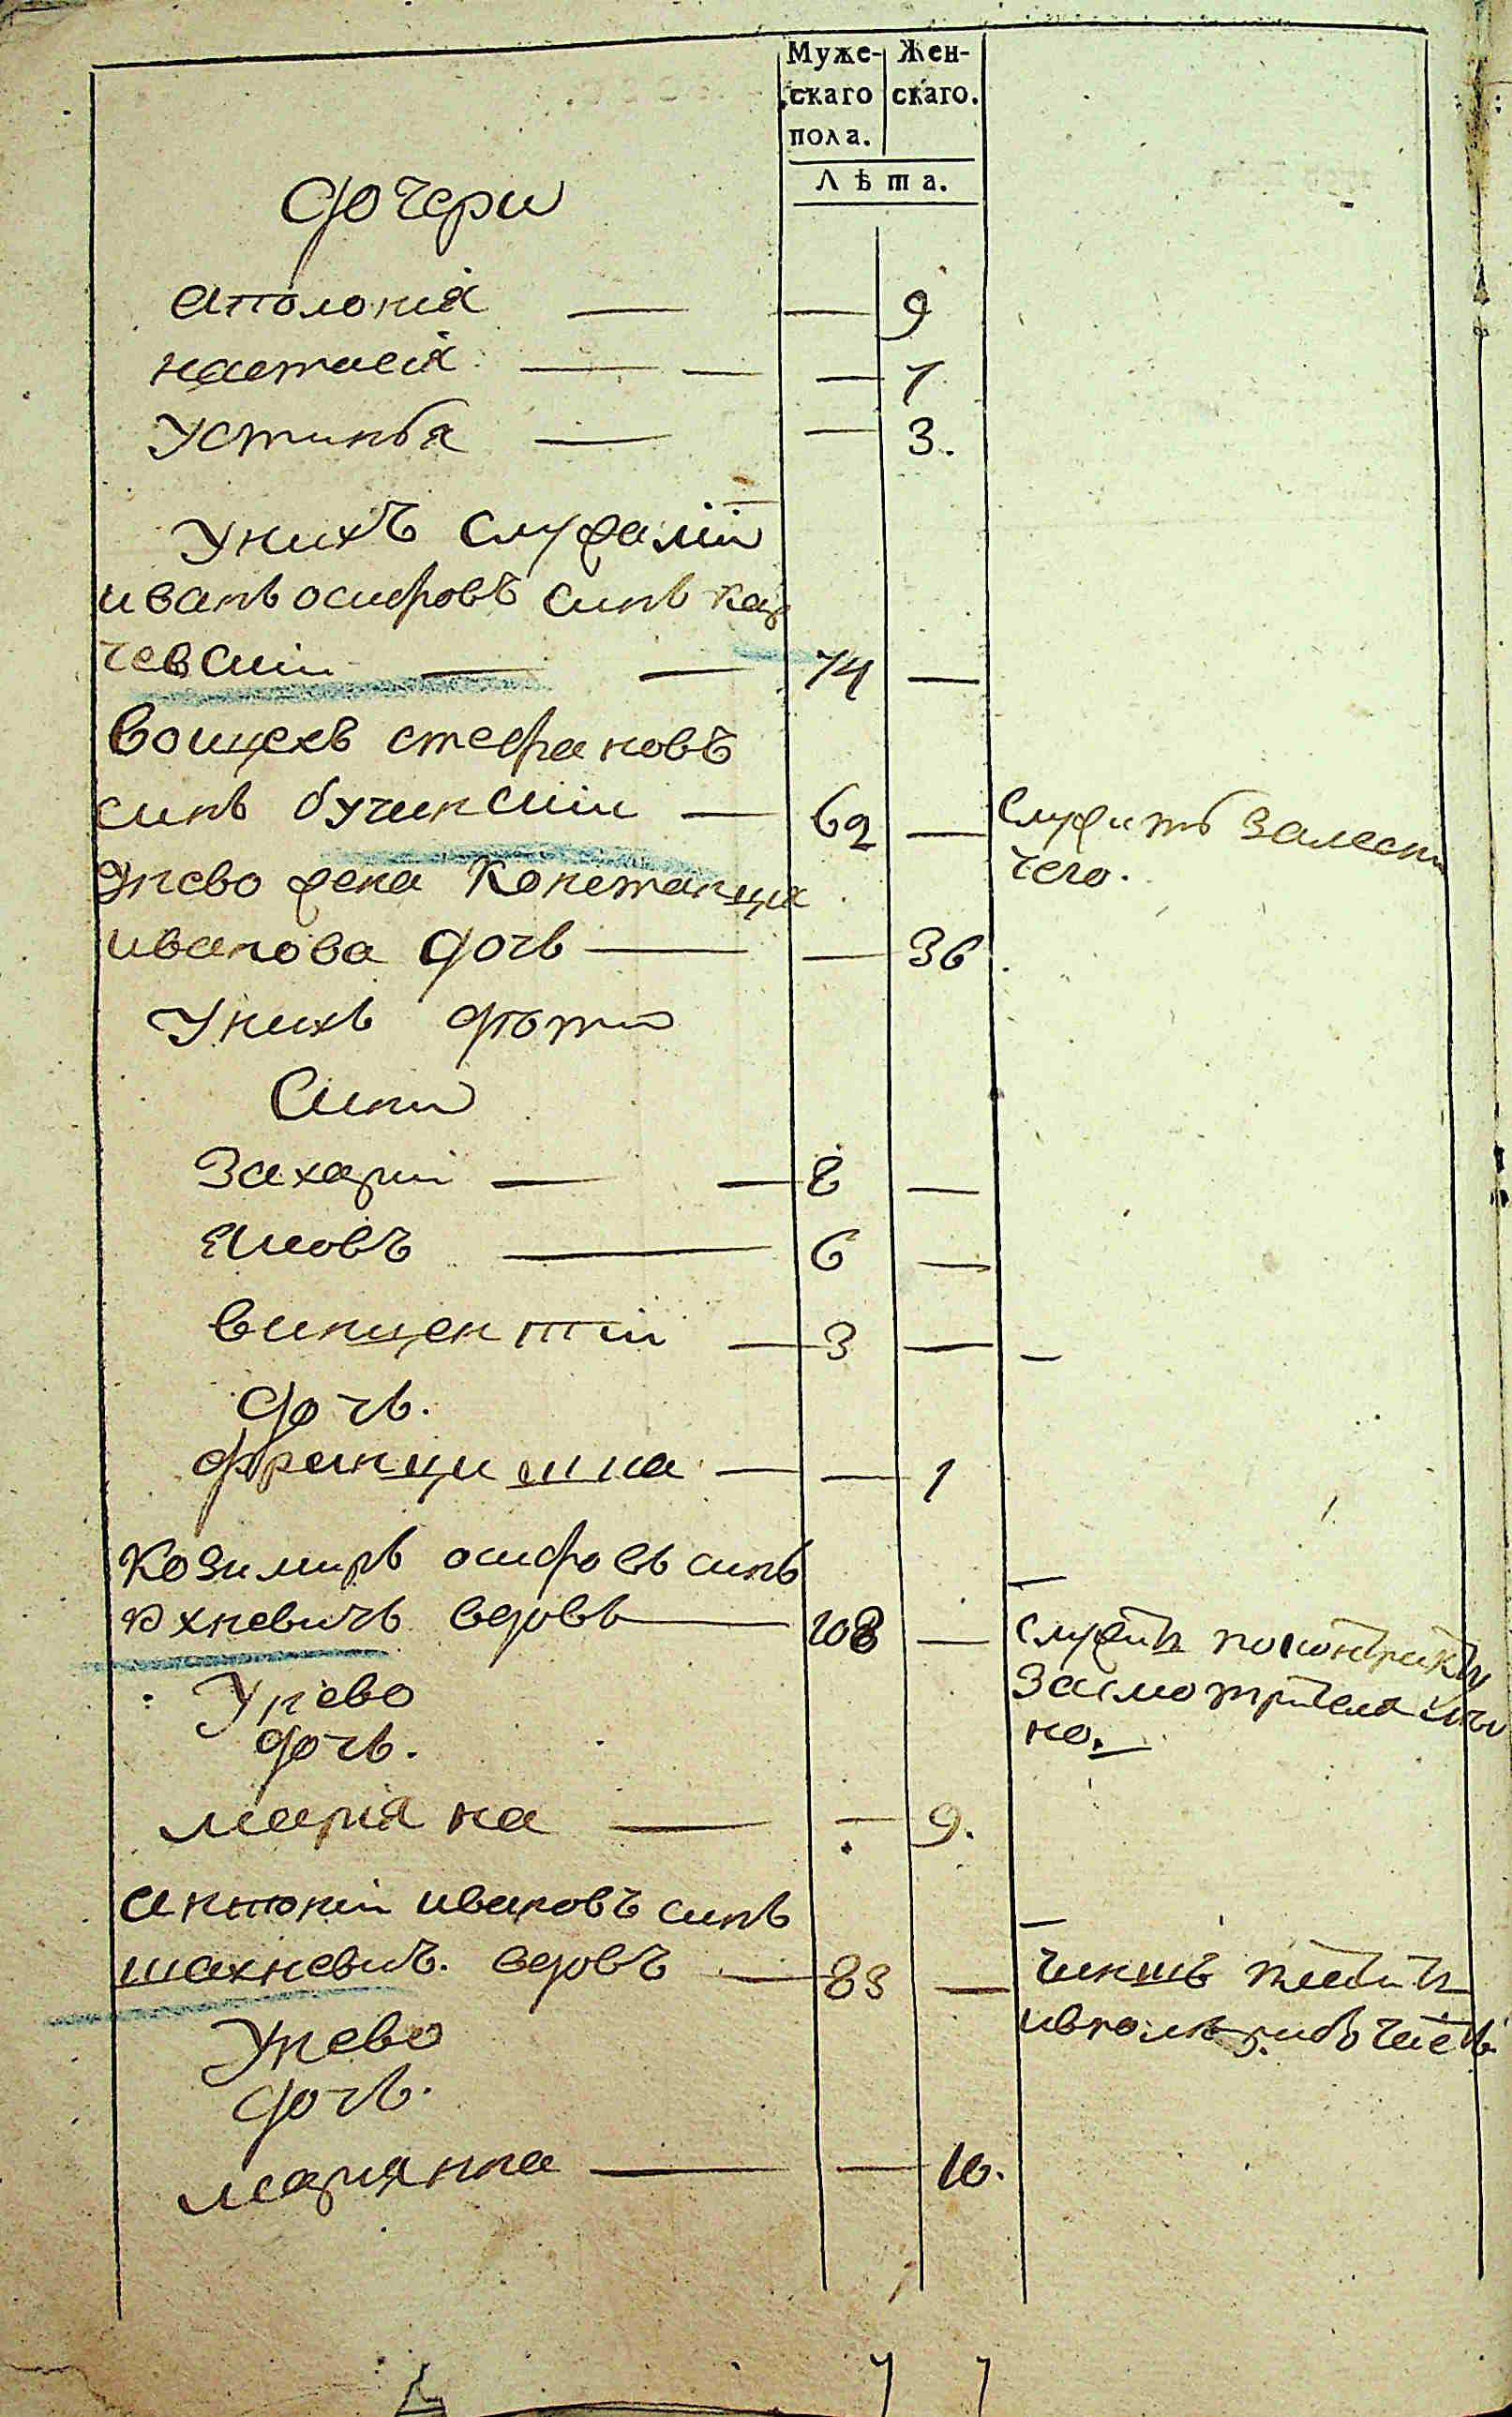 Муже- Жен-
скаго скаго.
пола.
Лѣта.
дочери
аполонія — — 9
настасія — — — 7
устинья — — 3.
у нихъ служалій
иванъ осифовъ синъ кар
чевскій — — 74 —
Воицехъ стефановъ
синъ бучинскій — 62 — служитъ залесни
чего.
унево жена констанция
иванова дочь — — 36
унихъ дѣти
Сини
Захарій — — 8 —
Яковъ — 6 —
винцентій — 3 — —
дочь.
францишка — — 1
козимиръ осифовъ синъ
юхневичъ вдовъ — 108 — служитъ поконтракту
засмотрителя
но.
Унево
дочь.
маріяна — — 9.
антоній ивановъ синъ
шахневичъ. вдовъ — 83 — чиншъ платитъ
Унево
дочь.
маріянна — — 10.